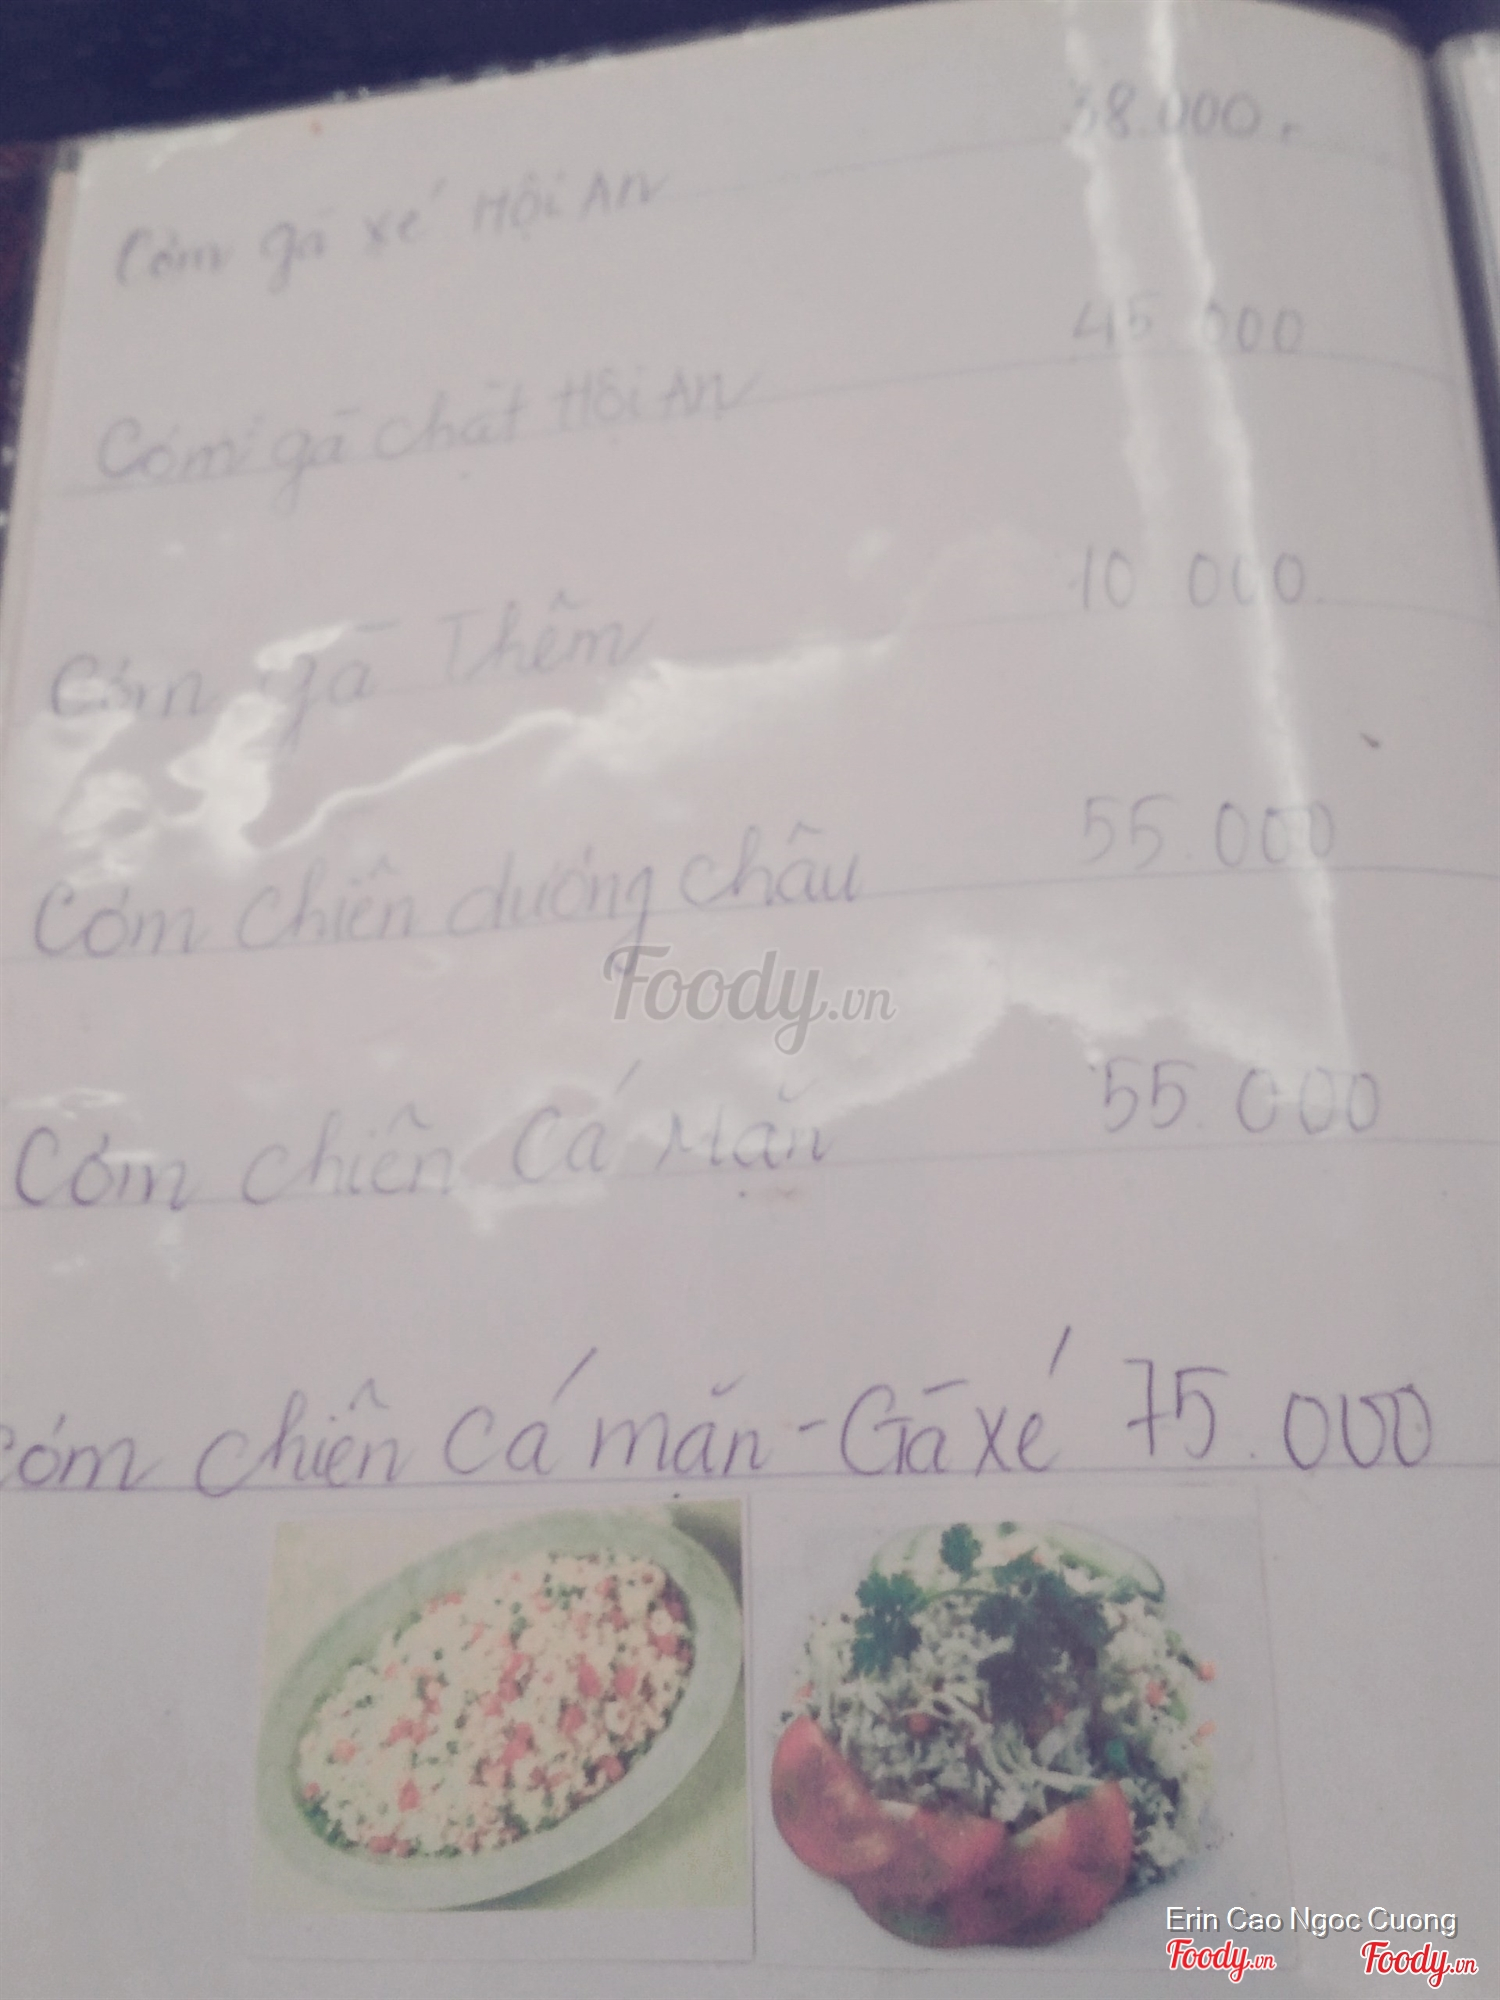 Cơm gà xé Hội An 38.000.
Cơm gà chặt Hội An 45.000
Cơm gà Thêm 10.000
Cơm chiên dương châu 55.000
Cơm chiên Cá Mặn 55.000
Cơm chiên Cá mặn - Gà xé 75.000
Foody.vn
Erin Cao Ngoc Cuong
Foody.vn Foody.vn